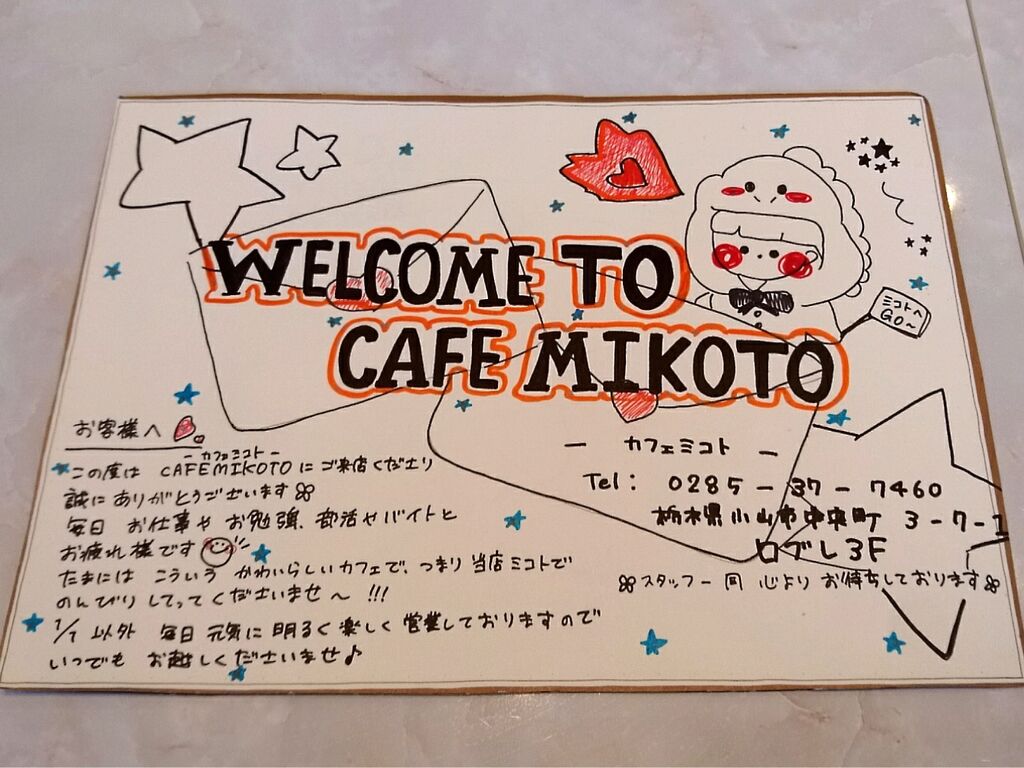 WELCOME TO
CAFE MIKOTO
ミコトへ
GO〜
お客様へ
－カフェミコト－
この度は CAFEMIKOTOにご来店くださり
誠にありがとうございます
毎日 お仕事や お勉強、部活やバイトと
お疲れ様です
たまには こういう かわいらしいカフェで、つまり当店ミコトで
のんびりしてってくださいませ〜 !!!
1/1 以外 毎日 元気に 明るく 楽しく 営業しておりますので
いつでも お越しくださいませ♪
－ カフェミコト －
Tel: 0285-37-7460
栃木県小山市中央町 3-7-1
ロブレ3F
スタッフ一同 心より お待ちしております